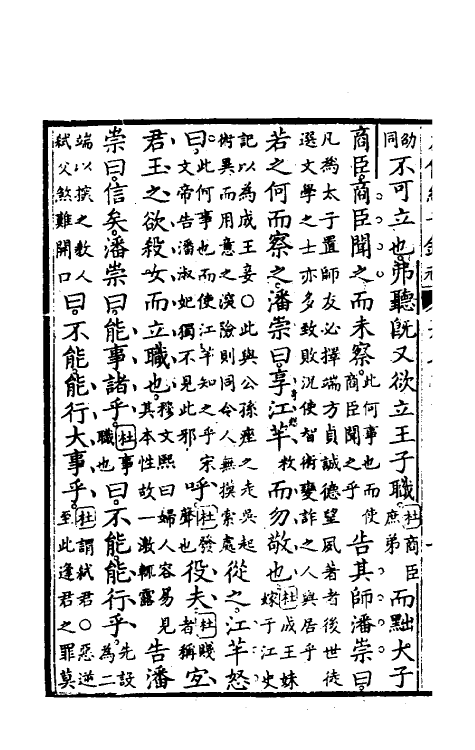 劭同不可立也弗聽既又欲立王子職杜商臣庶弟而黜大子
商臣商臣聞之而未察此何事也而使商臣聞之乎告其師潘崇曰
凡為太子置師友必擇端方貞誠德望夙著者後世徒
選文學之士亦多致敗況使智術變詐之人與居乎
若之何而察之潘崇曰享江芈教而勿敬也杜成王妹嫁于江史
記以為成王妾〇此與公孫痤之走吳起術異而用意之深險則同令人無摸索處從之江芈怒
曰此何事也而使江芈知之乎宋文帝告潘淑妃獨不見此邪呼杜發聲也役夫杜賤者稱宜
君王之欲殺女而立職也穆文熙曰婦人容易見其本性故一激輒露告潘
崇曰信矣潘崇曰能事諸乎杜事職也曰不能能行乎先設為二
端以探之教人弑父煞難開口曰不能能行大事乎杜謂弑君〇惡逆至此逢君之罪莫